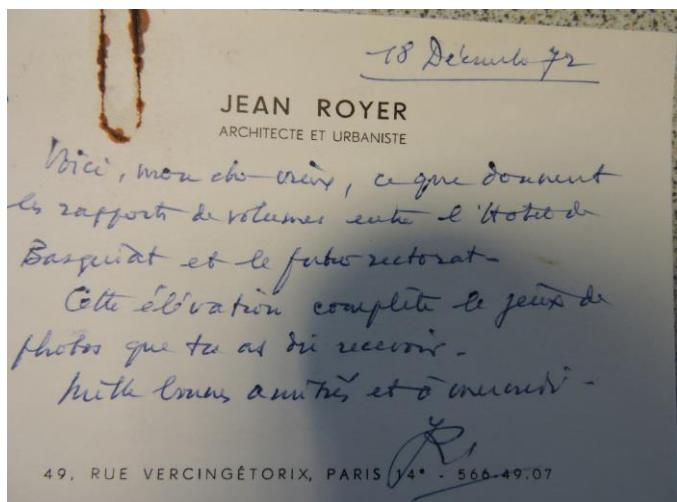 18 Décembre 72
JEAN ROYER
ARCHITECTE ET URBANISTE
Voici, mon cher vieux, ce que donnent
les rapports de volumes entre l'Hotel de
Basquiat et le futur rectorat -
Cette élévation complète le jeux de
photos que tu as dû recevoir -
Mille bonnes amitiés et à mercredi -
JR
49, RUE VERCINGÉTORIX, PARIS 14e - 566-49.07